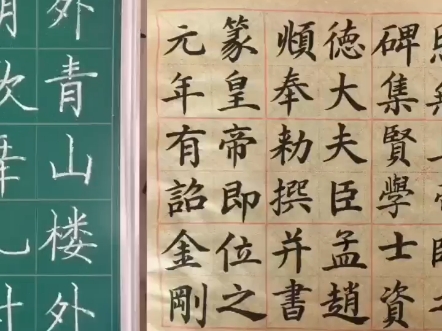 碑集賢學士資
德大夫臣孟趙
順奉勅撰并書
篆皇帝即位之
元年有詔金剛
外青山楼外